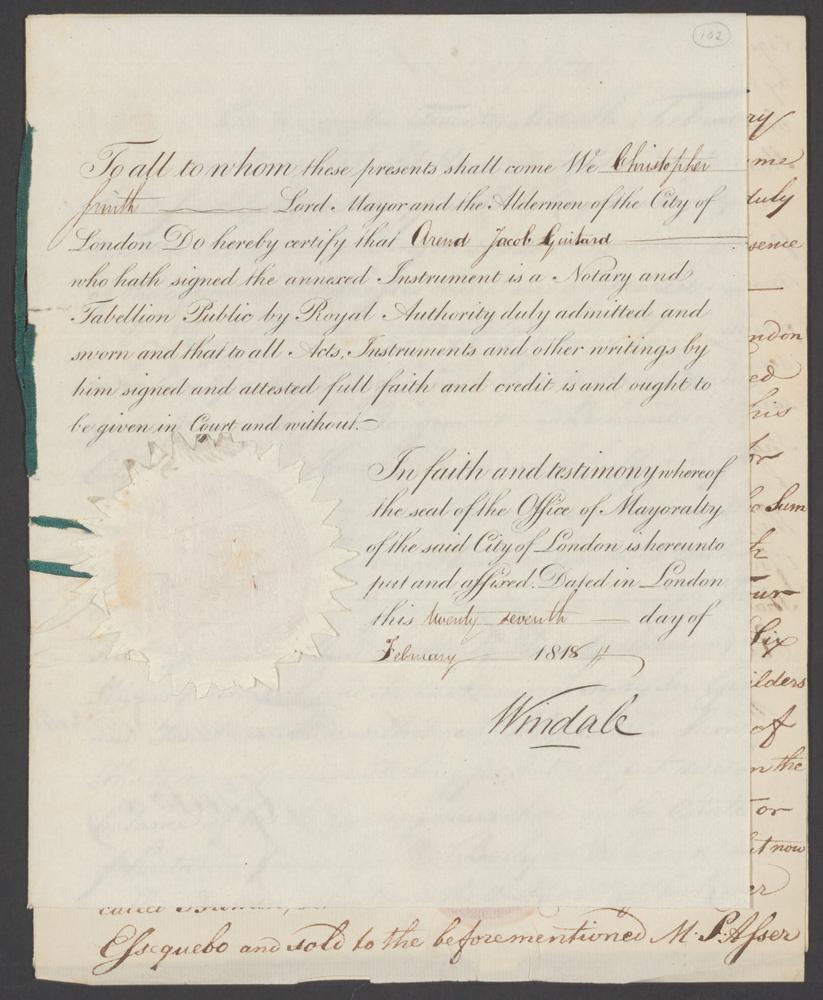 102
To all to whom these presents shall come We Christopher
Smith Lord Mayor and the Aldermen of the City of
London Do hereby certify that Arend Jacob Guitard
who hath signed the annexed Instrument is a Notary and
Tabellion Public by Royal Authority duly admitted and
sworn and that to all Acts, Instruments and other writings by
him signed and attested full faith and credit is and ought to
be given in Court and without.
In faith and testimony whereof
the seal of the Office of Mayoralty
of the said City of London is hereunto
put and affixed. Dated in London
this twenty seventh day of
February 1818
Windale
ry
me
duly
sence
ndon
ed
his
or
Sum
ur
Six
ilders
of
n the
or
t now
er
called
Essequebo and sold to the beforementioned M. S. Asser